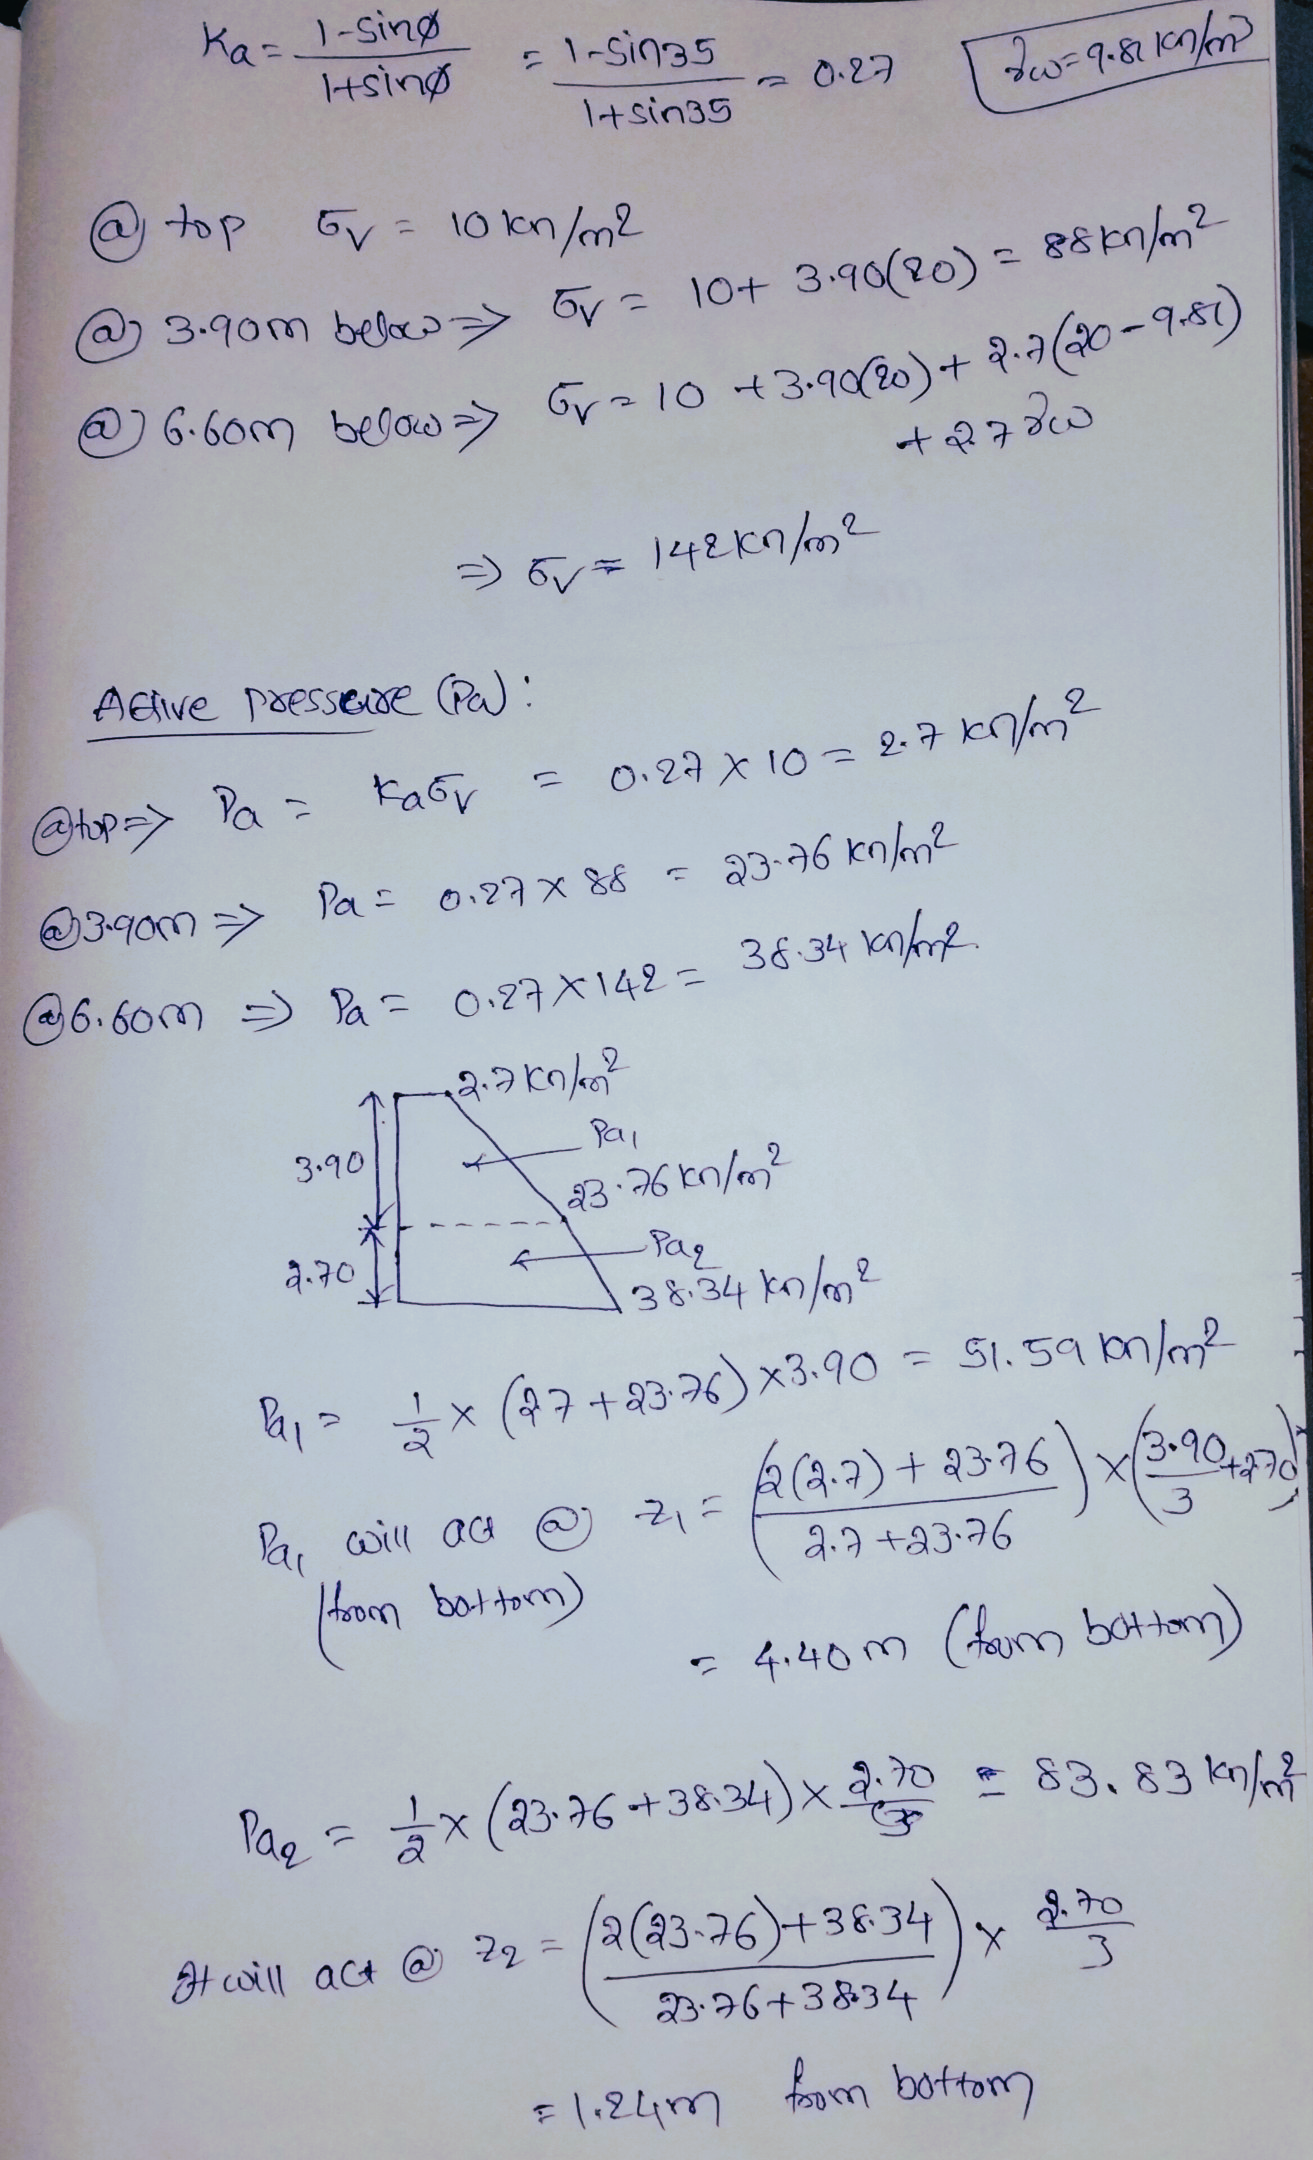 Ka = (1-sinø)/(1+sinø) = (1-sin35)/(1+sin35) = 0.27 γω=9.81 kn/m3
@ top σv = 10 kn/m2
@ 3.90m below => σv = 10+ 3.90(20) = 88kn/m2
@ 6.60m below => σv = 10 +3.90(20)+ 2.7(20-9.81)
+ 2.7γω
=> σv = 142kn/m2
Active pressure (Pa):
@top=> Pa = Kaσv = 0.27 x 10 = 2.7 kn/m2
@3.90m => Pa = 0.27 x 88 = 23.76 kn/m2
@6.60m => Pa = 0.27x142 = 38.34 kn/m2.
2.7kn/m2
Pa1
3.90
23.76kn/m2
Pa2
2.70
38.34 kn/m2
Pa1 = 1/2 x (27+23.76)x3.90 = 51.59 kn/m2
Pa1 will act @ z1 = (2(2.7)+23.76)/(2.7+23.76) x (3.90/3+2.70)
(from bottom)
= 4.40m (from bottom)
Pa2 = 1/2 x (23.76+38.34)x 2.70 = 83.83 kn/m2
It will act @ z2 = (2(23.76)+38.34)/(23.76+38.34) x 2.70/3
=1.24m from bottom